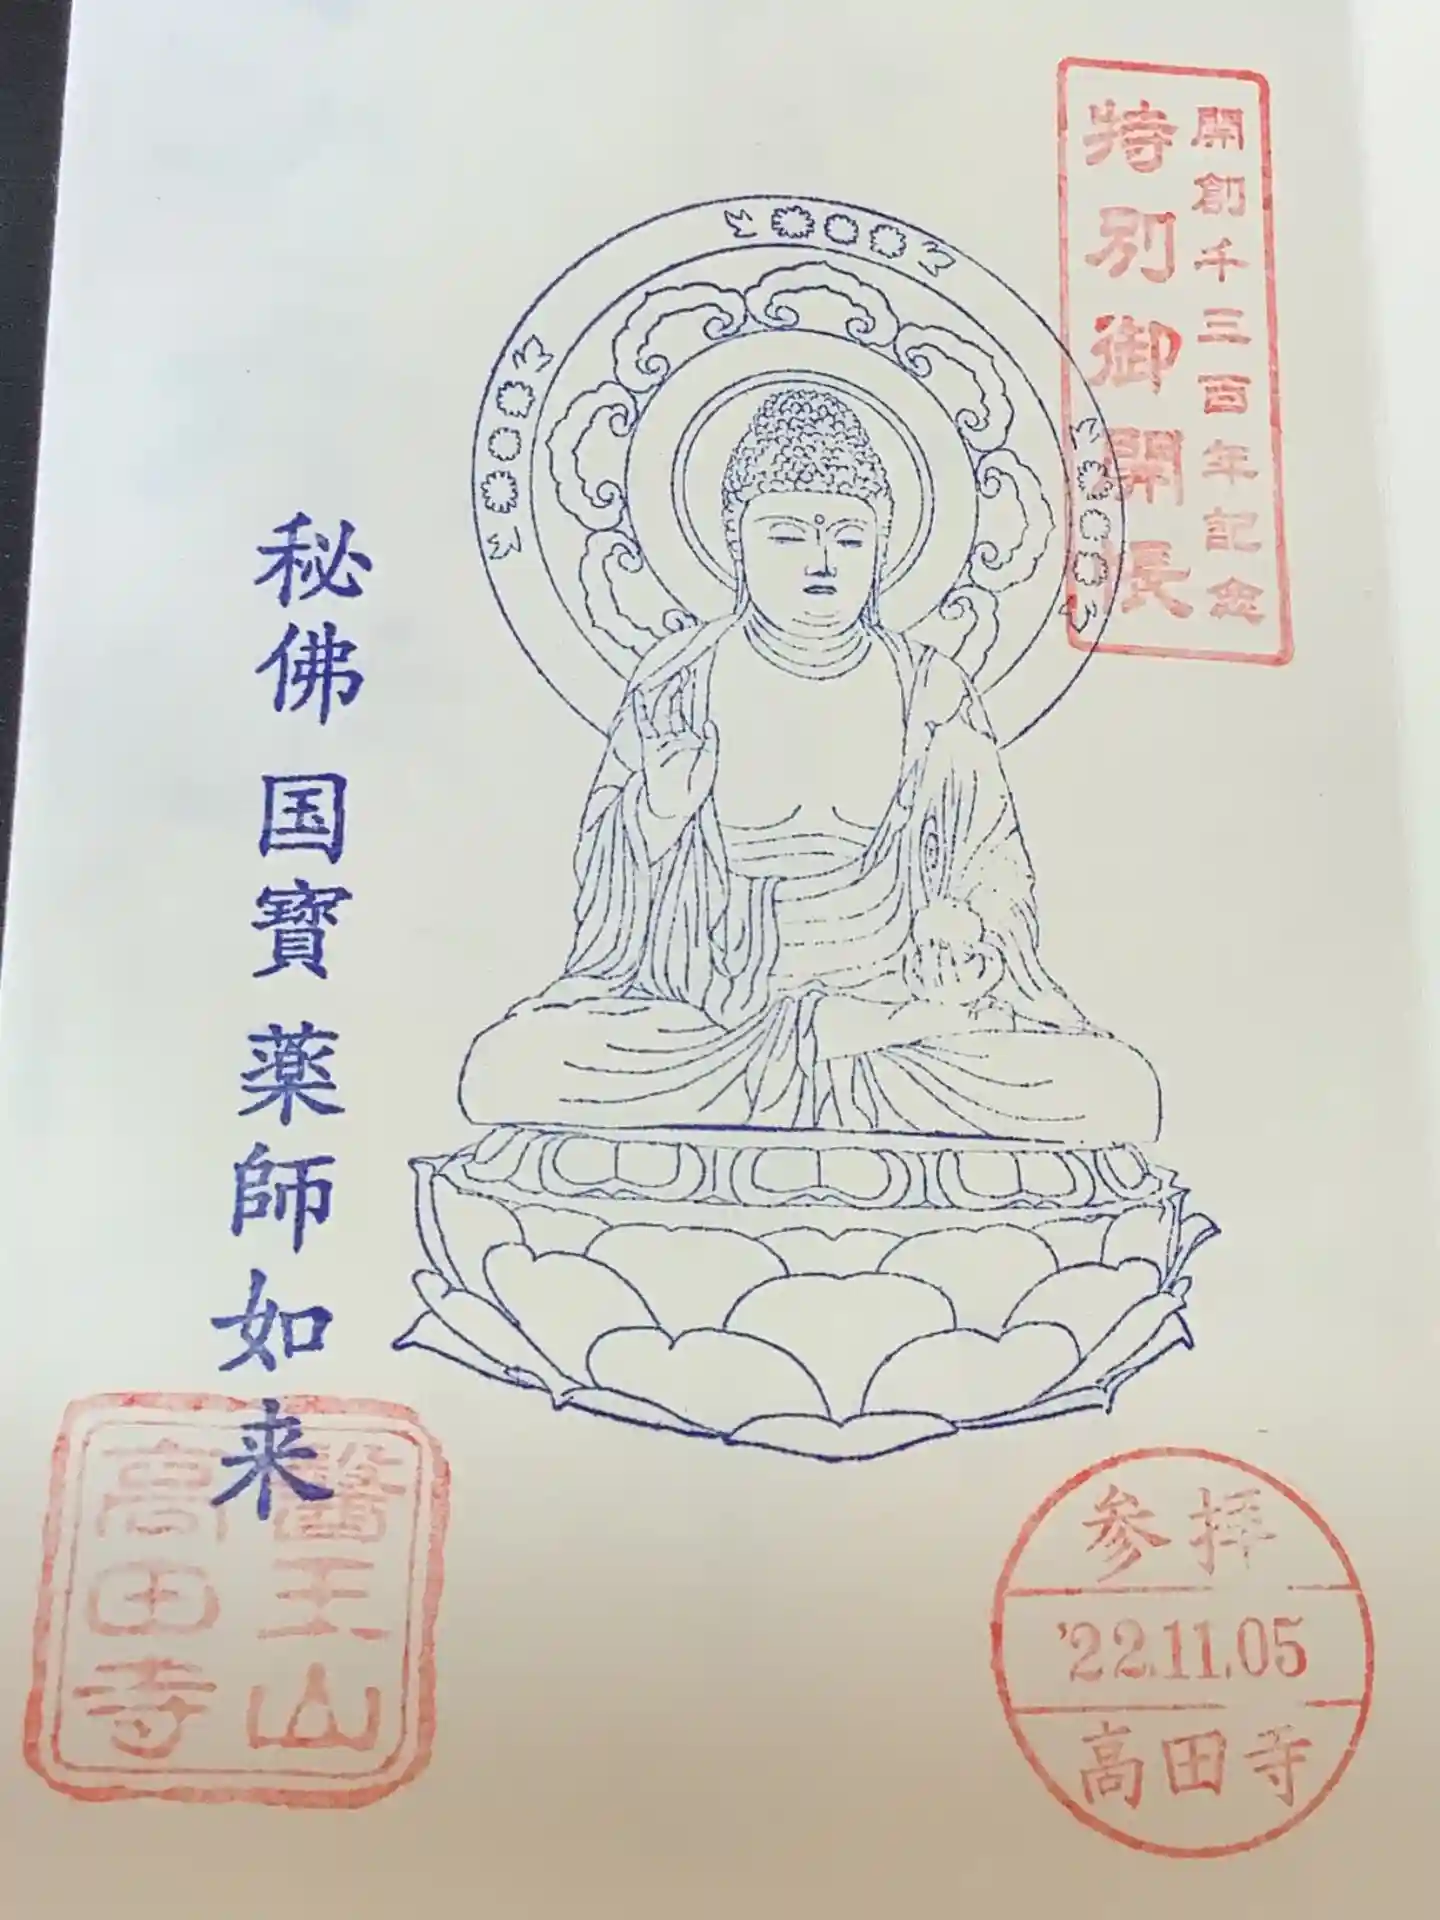 開創千三百年記念
特別御開帳
秘佛 国寶 薬師如来
醫王山
高田寺
参拝
'22.11.05
高田寺